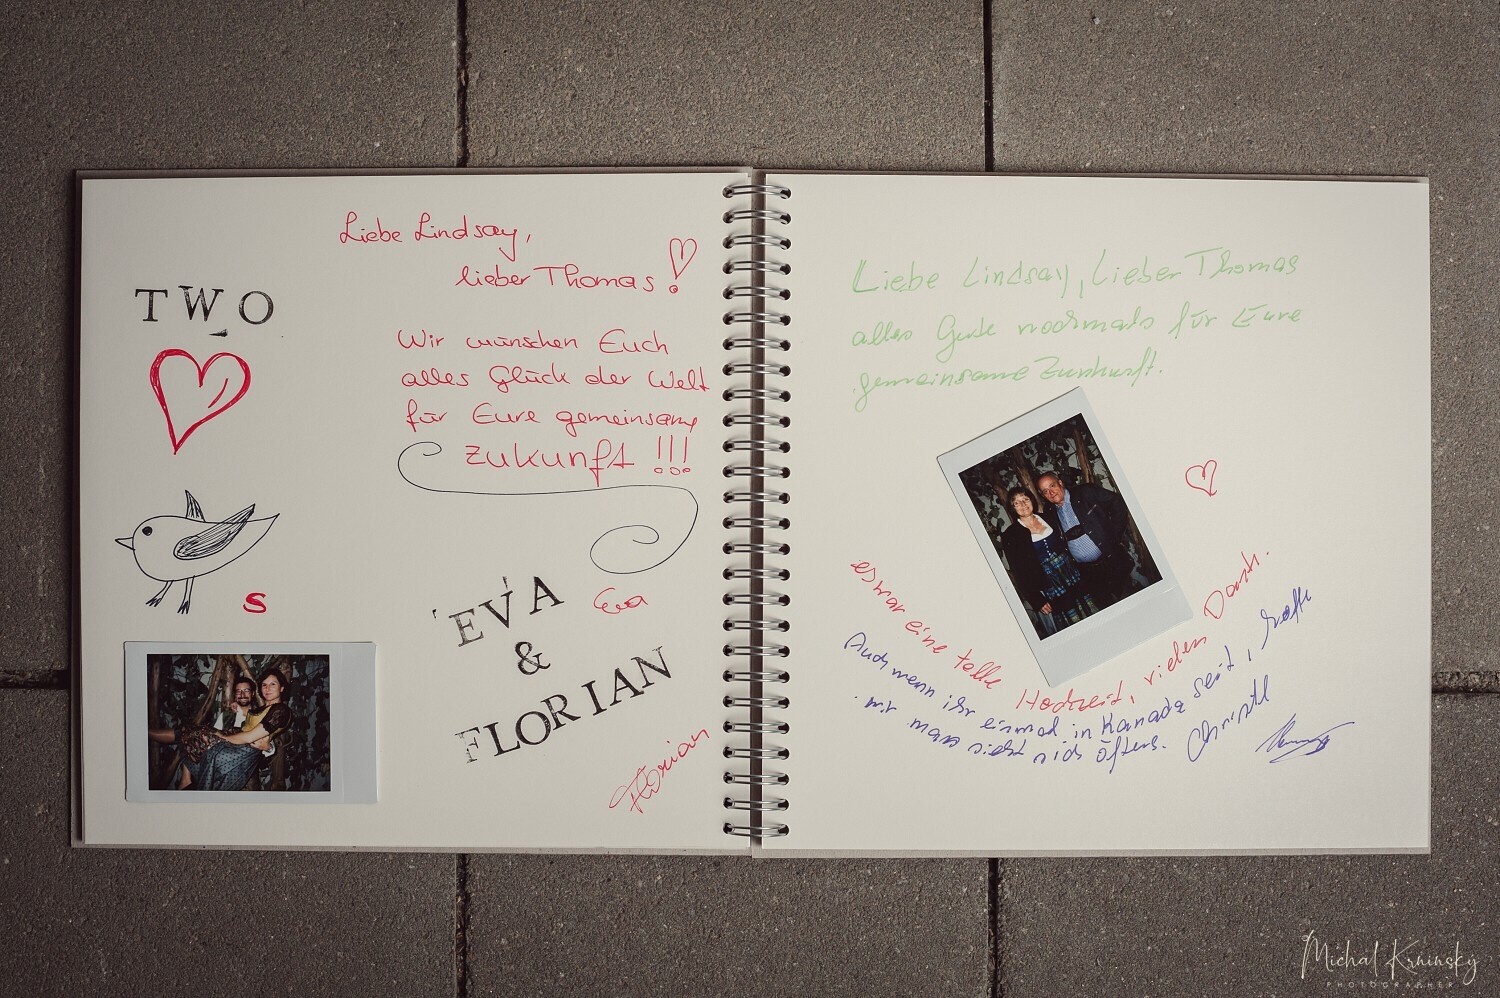 Liebe Lindsay,
lieber Thomas!
TWO
Wir wünschen Euch
alles Glück der Welt
für Eure gemeinsame
Zukunft !!!
S
EVA
&
FLORIAN
Eva
Florian
Liebe Lindsay, Lieber Thomas
alles Gute nochmals für Eure
gemeinsame Zunkunft.
es war eine tolle Hochzeit, vielen Dank.
Auch wenn ihr einmal in Kanada seit, hoffe
wir man sieht sich öfters. Christl
Michal Krninský
PHOTOGRAPHER